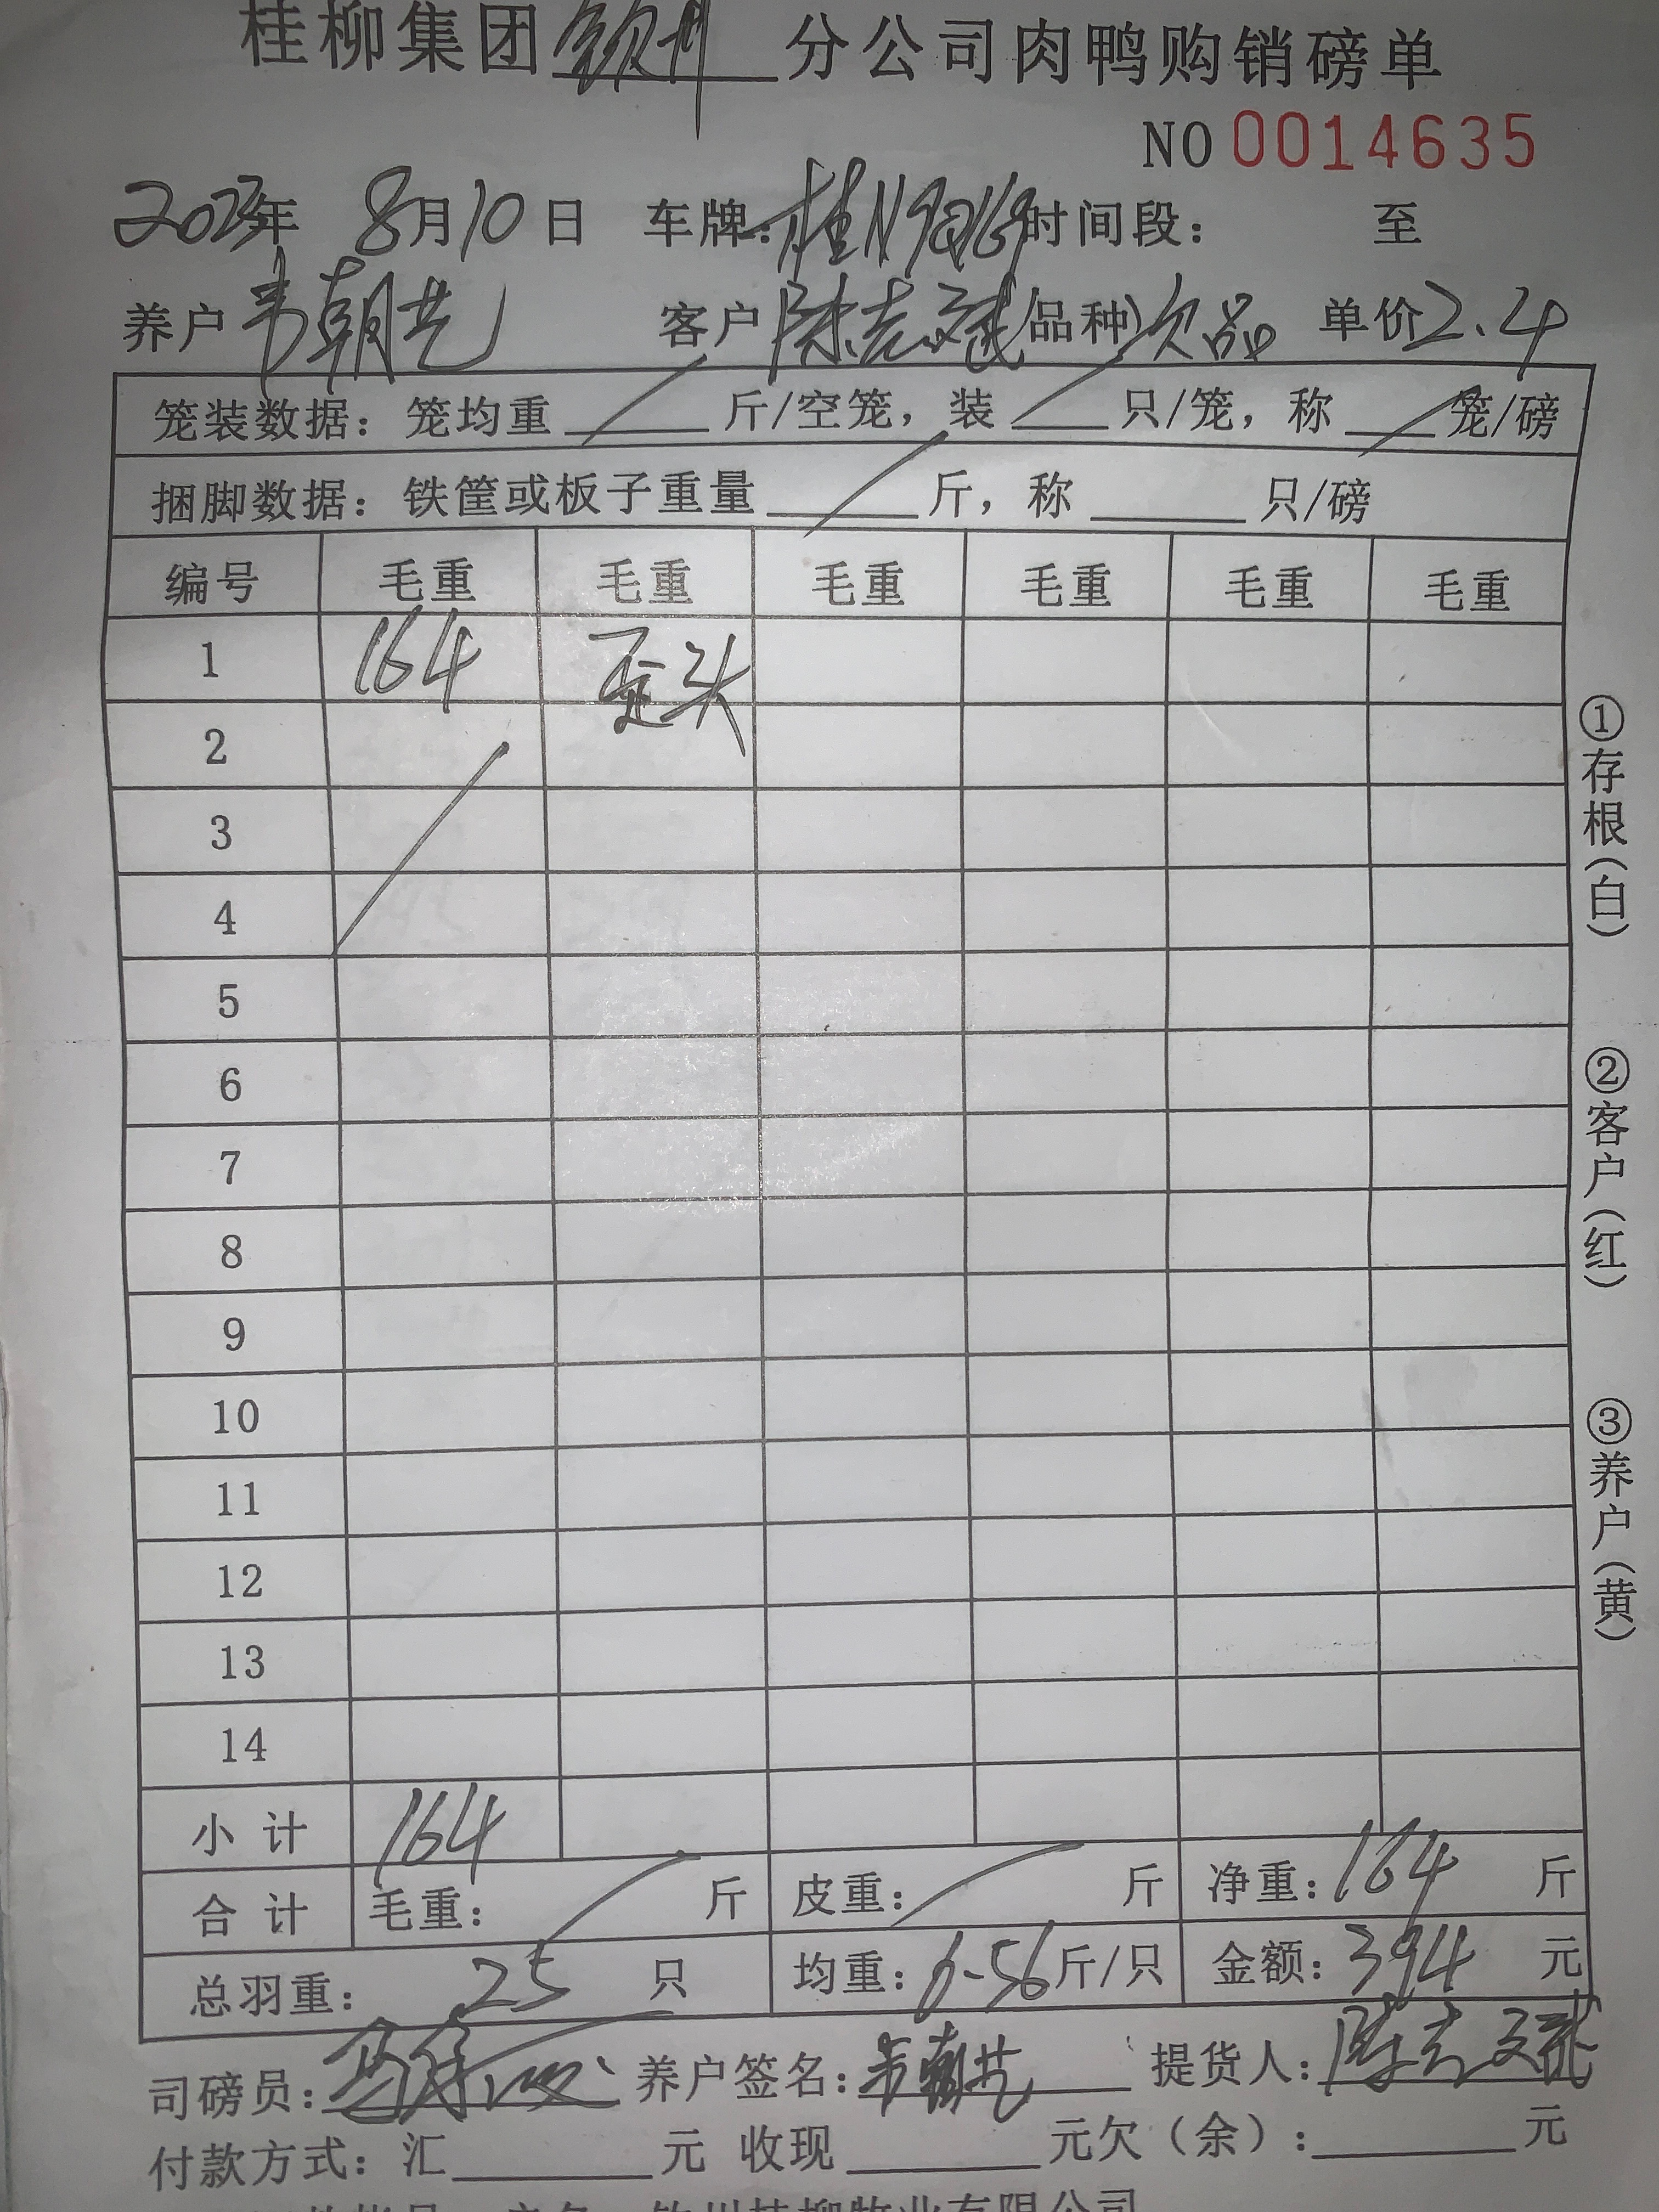 桂柳集团 钦州 分公司肉鸭购销磅单
NO 0014635
2023年 8月10日 车牌: 桂N9Q169 时间段: 至
养户 韦朝艺 客户 陈志斌 (品种) 次品 单价 2.4
笼装数据: 笼均重 斤/空笼, 装 只/笼, 称 笼/磅
捆脚数据: 铁筐或板子重量 斤, 称 只/磅
编号 毛重 毛重 毛重 毛重 毛重 毛重
1 164 歪头
2
3
4
5
6
7
8
9
10
11
12
13
14
小计 164
合计 毛重: 斤 皮重: 斤 净重: 164 斤
总羽重: 25 只 均重: 6-56 斤/只 金额: 394 元
司磅员: 养户签名: 韦朝艺 提货人: 陈志斌
付款方式: 汇 元 收现 元欠(余): 元
钦州桂柳牧业有限公司
①存根(白)
②客户(红)
③养户(黄)